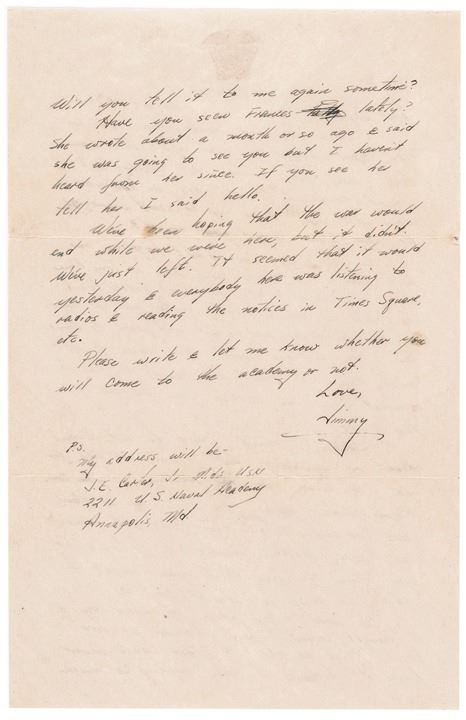 Will you tell it to me again sometime?
Have you seen Frances lately?
She wrote about a month or so ago & said
she was going to see you but I haven't
heard from her since. If you see her
tell her I said hello.
We've been hoping that the war would
end while we were here, but it didn't.
We've just left. It seemed that it would
yesterday & everybody here was listening to
radios & reading the notices in Times Square,
etc.
Please write & let me know whether you
will come to the academy or not.
Love,
Jimmy
P.S.
My address will be-
J.E. Carter, Jr Mid'n USN
2211 U.S. Naval Academy
Annapolis, Md